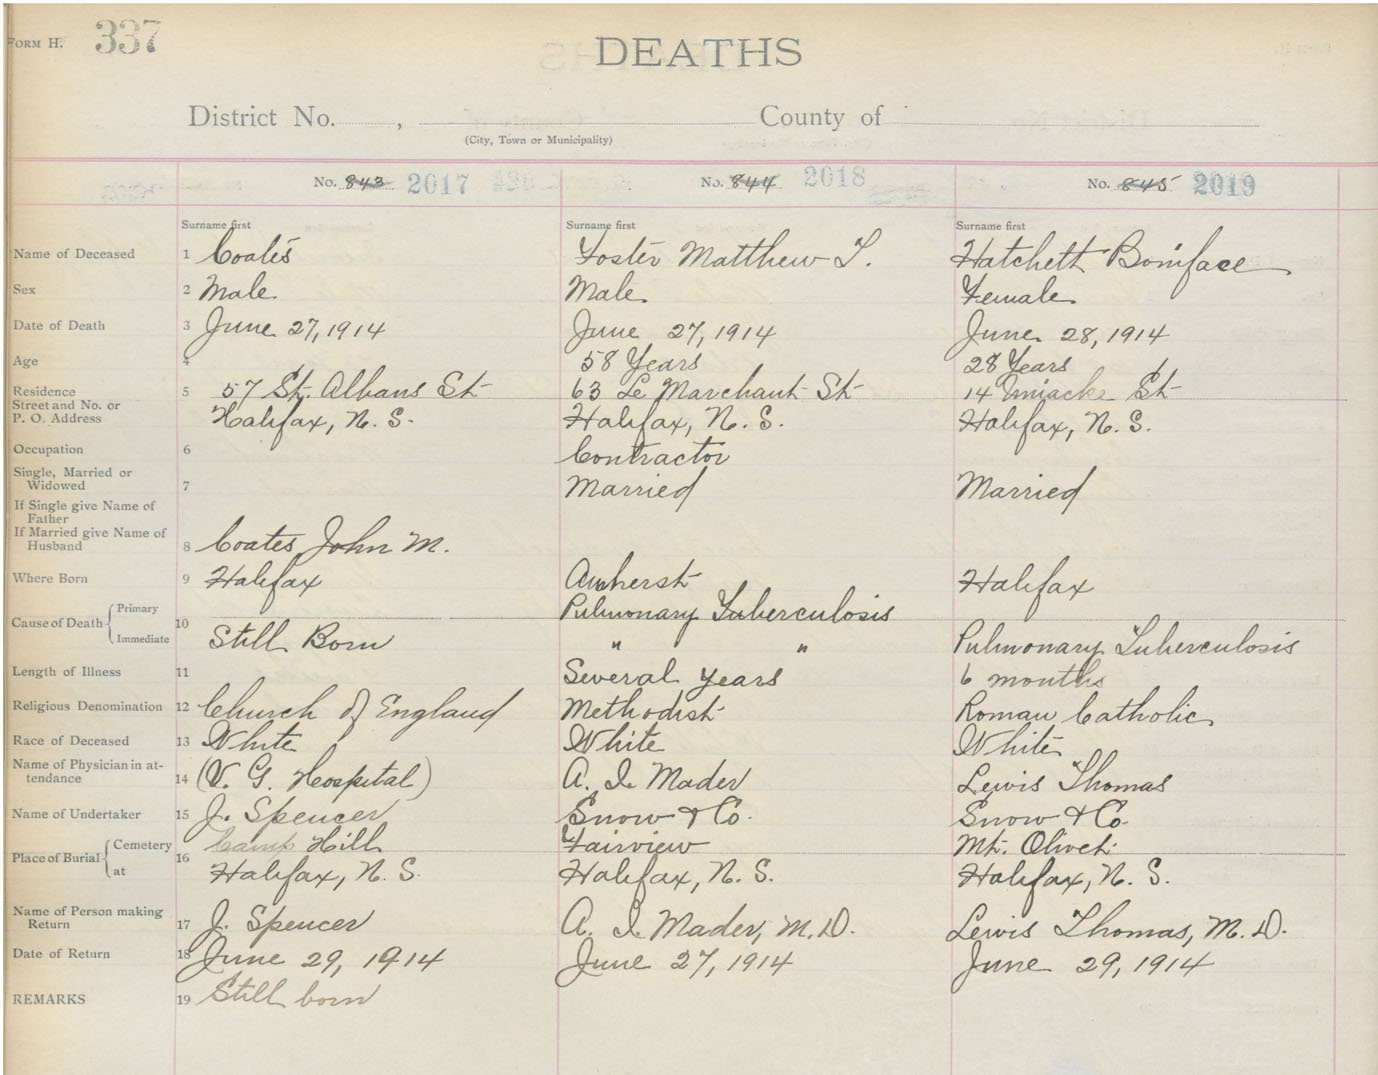 FORM H. 337
DEATHS
District No. , County of
(City, Town or Municipality)
No. 843 2017 No. 844 2018 No. 845 2019
Surname first Surname first Surname first
Name of Deceased 1 Coates Foster Matthew T. Hatchett Boniface
Sex 2 Male Male Female
Date of Death 3 June 27, 1914 June 27, 1914 June 28, 1914
Age 4 58 Years 28 Years
Residence 5 57 St. Albans St 63 Le Marchant St 14 Uniacke St
Street and No. or
P. O. Address Halifax, N. S. Halifax, N. S. Halifax, N. S.
Occupation 6 Contractor
Single, Married or
Widowed 7 Married Married
If Single give Name of
Father
If Married give Name of
Husband 8 Coates, John M.
Where Born 9 Halifax Amherst Halifax
Cause of Death Primary 10 Pulmonary Tuberculosis
Immediate Still Born " " Pulmonary Tuberculosis
Length of Illness 11 Several years 6 months
Religious Denomination 12 Church of England Methodist Roman Catholic
Race of Deceased 13 White White White
Name of Physician in at-
tendance 14 (V. G. Hospital) A. I. Mader Lewis Thomas
Name of Undertaker 15 J. Spencer Snow & Co. Snow & Co.
Place of Burial Cemetery 16 Camp Hill Fairview Mt. Olivet
at Halifax, N. S. Halifax, N. S. Halifax, N. S.
Name of Person making
Return 17 J. Spencer A. I. Mader, M. D. Lewis Thomas, M. D.
Date of Return 18 June 29, 1914 June 27, 1914 June 29, 1914
REMARKS 19 Still born